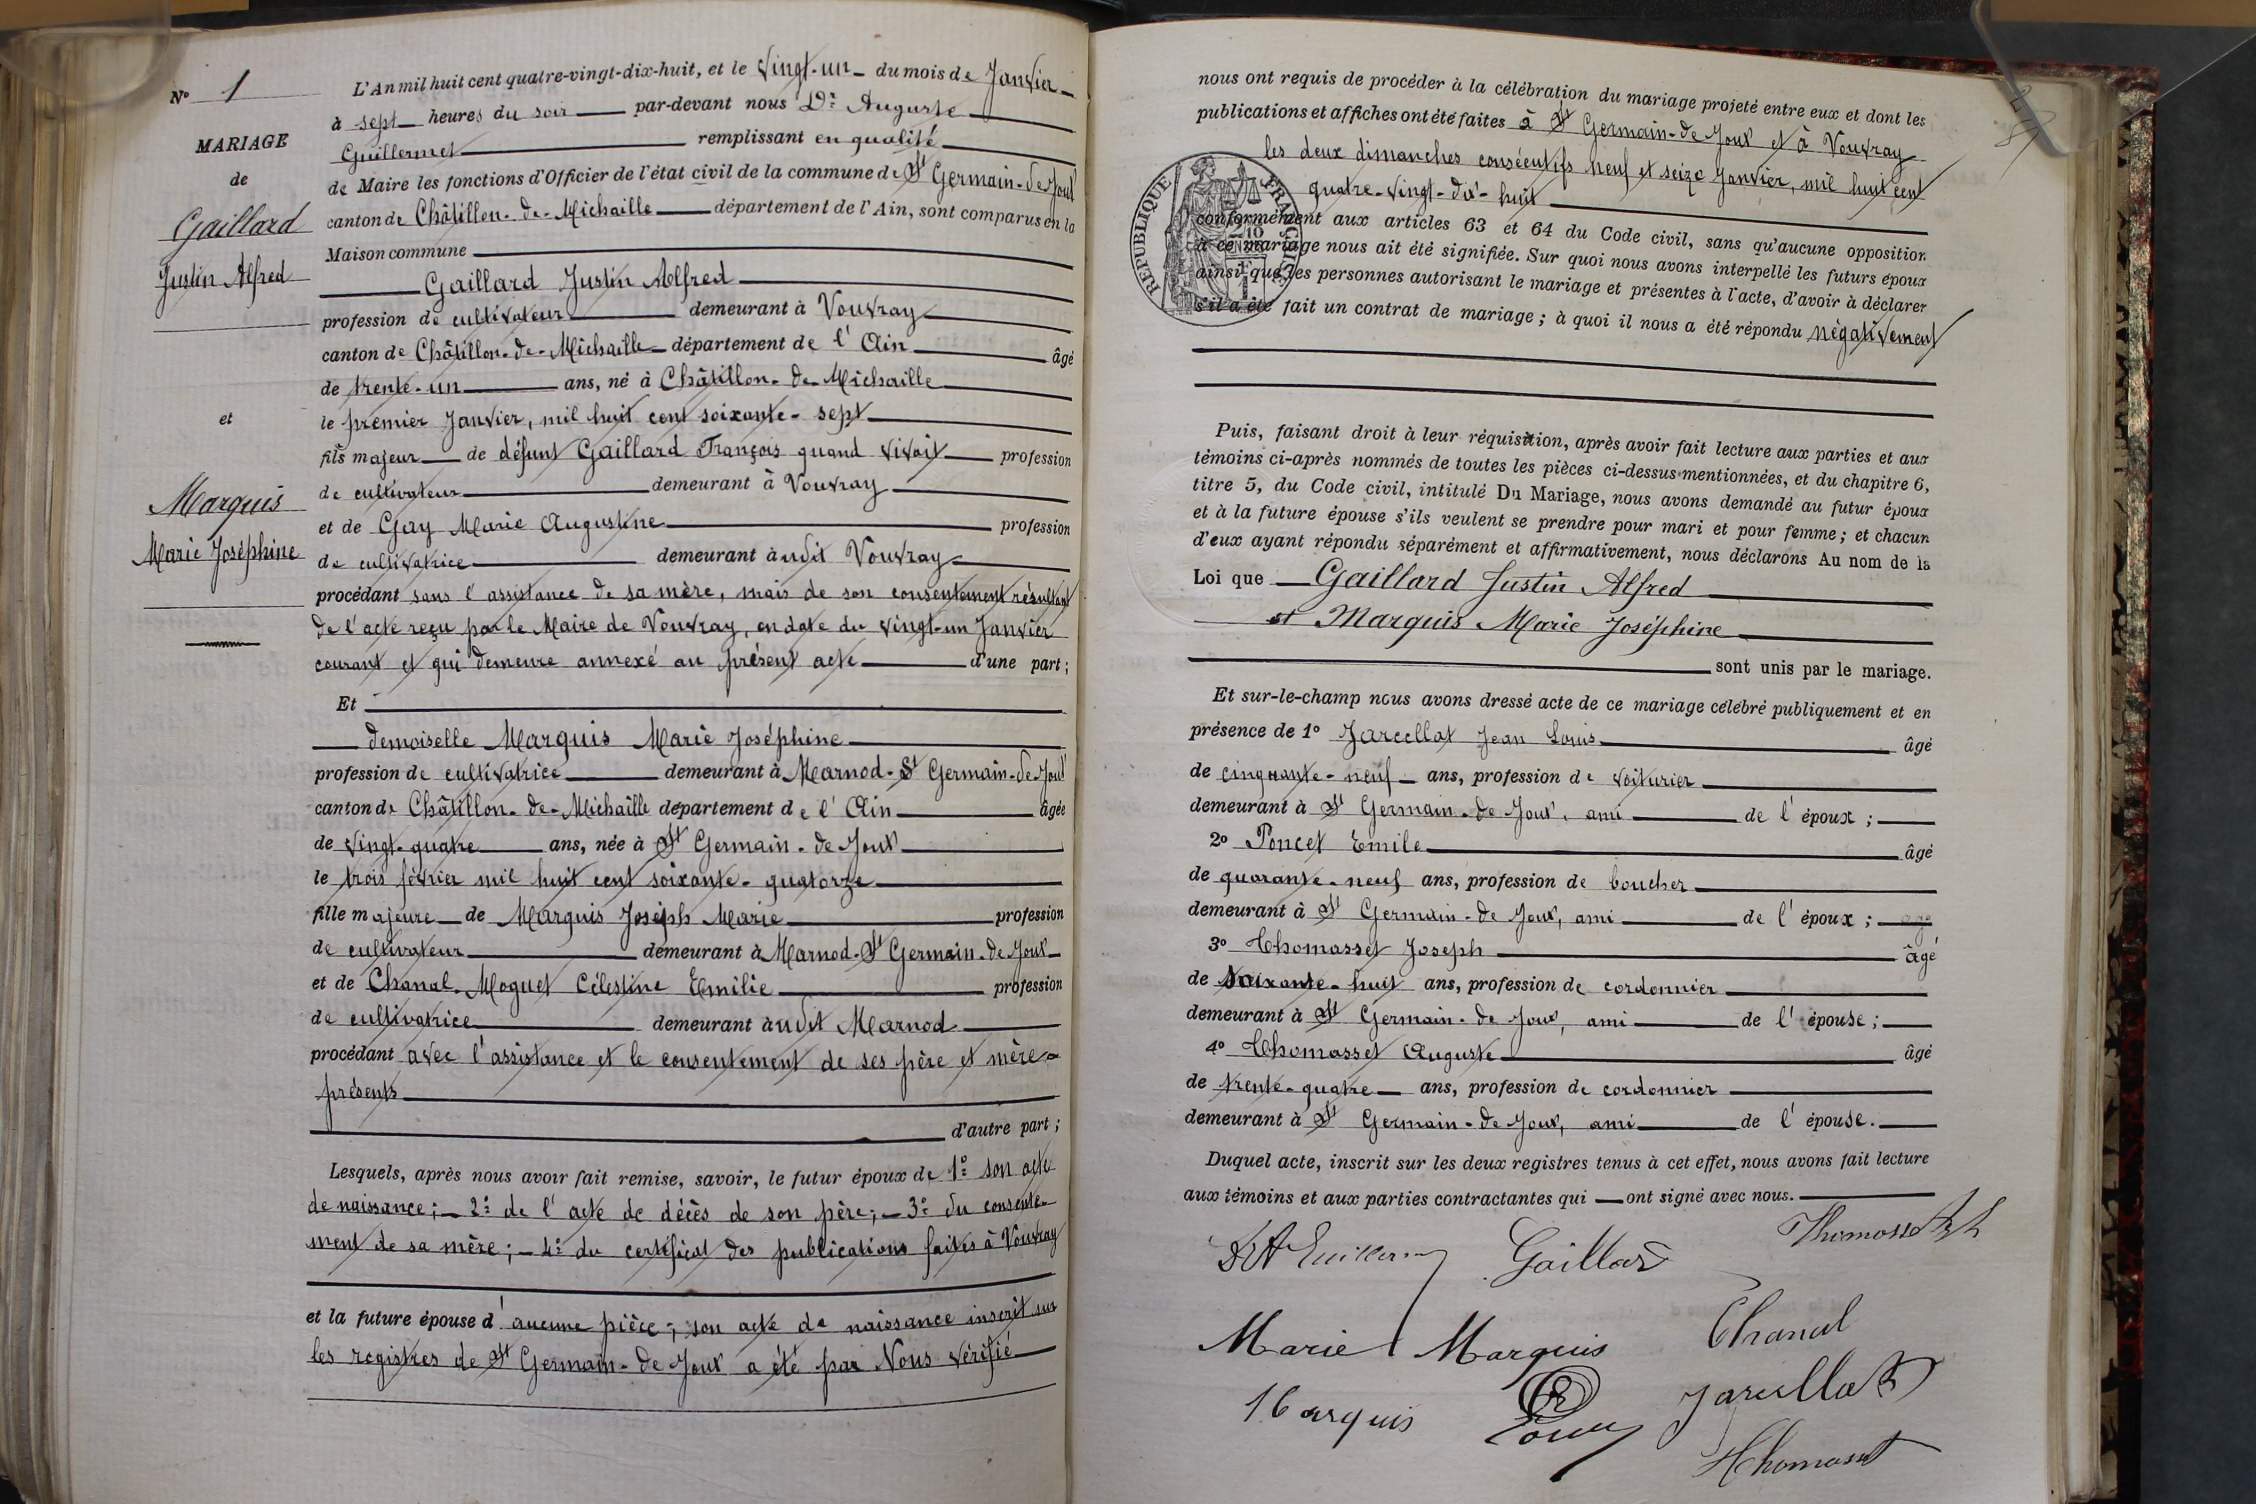 N° 1
MARIAGE
de
Gaillard
Justin Alfred
et
Marquis
Marie Joséphine
L'An mil huit cent quatre-vingt-dix-huit, et le vingt-un du mois de Janvier
à sept heures du soir par-devant nous Dr Auguste
Guillermet remplissant en qualité
de Maire les fonctions d'Officier de l'état civil de la commune de St Germain-de-Joux
canton de Châtillon-de-Michaille département de l'Ain, sont comparus en la
Maison commune
Gaillard Justin Alfred
profession de cultivateur demeurant à Vouvray
canton de Châtillon-de-Michaille département de l'Ain âgé
de trente-un ans, né à Châtillon-de-Michaille
le premier Janvier, mil huit cent soixante-sept
fils majeur de défunt Gaillard François quand vivait profession
de cultivateur demeurant à Vouvray
et de Gay Marie Augustine profession
de cultivatrice demeurant àudit Vouvray
procédant sans l'assistance de sa mère, mais de son consentement résultant
de l'acte reçu par le Maire de Vouvray, en date du vingt-un Janvier
courant et qui demeure annexé au présent acte d'une part;
Et
demoiselle Marquis Marie Joséphine
profession de cultivatrice demeurant à Marnod-St Germain-de-Joux
canton de Châtillon-de-Michaille département de l'Ain âgée
de vingt-quatre ans, née à St Germain-de-Joux
le trois février mil huit cent soixante-quatorze
fille majeure de Marquis Joseph Marie profession
de cultivateur demeurant à Marnod-St Germain-de-Joux
et de Chanal-Moguet Célestine Emilie profession
de cultivatrice demeurant àudit Marnod
procédant avec l'assistance et le consentement de ses père et mère
présents
d'autre part;
Lesquels, après nous avoir fait remise, savoir, le futur époux de 1° son acte
de naissance; 2° de l'acte de décès de son père; 3° du consente-
ment de sa mère; 4° du certificat des publications faites à Vouvray
et la future épouse d'aucune pièce; son acte de naissance inscrit sur
les registres de St Germain-de-Joux a été par Nous vérifié
nous ont requis de procéder à la célébration du mariage projeté entre eux et dont les
publications et affiches ont été faites à St Germain-de-Joux et à Vouvray
les deux dimanches consécutifs neuf et seize Janvier, mil huit cent
quatre-vingt-dix-huit
RÉPUBLIQUE FRANÇAISE
conformément aux articles 63 et 64 du Code civil, sans qu'aucune opposition
à ce mariage nous ait été signifiée. Sur quoi nous avons interpellé les futurs époux
ainsi que les personnes autorisant le mariage et présentes à l'acte, d'avoir à déclarer
s'il a été fait un contrat de mariage; à quoi il nous a été répondu négativement
Puis, faisant droit à leur réquisition, après avoir fait lecture aux parties et aux
témoins ci-après nommés de toutes les pièces ci-dessus mentionnées, et du chapitre 6,
titre 5, du Code civil, intitulé Du Mariage, nous avons demandé au futur époux
et à la future épouse s'ils veulent se prendre pour mari et pour femme; et chacun
d'eux ayant répondu séparément et affirmativement, nous déclarons Au nom de la
Loi que Gaillard Justin Alfred
et Marquis Marie Joséphine
sont unis par le mariage.
Et sur-le-champ nous avons dressé acte de ce mariage célébré publiquement et en
présence de 1° Jarcellat Jean Louis âgé
de cinquante-neuf ans, profession de voiturier
demeurant à St Germain-de-Joux, ami de l'époux;
2° Poncet Emile âgé
de quarante-neuf ans, profession de boucher
demeurant à St Germain-de-Joux, ami de l'époux;
3° Thomasset Joseph âgé
de soixante-huit ans, profession de cordonnier
demeurant à St Germain-de-Joux, ami de l'épouse;
4° Thomasset Auguste âgé
de trente-quatre ans, profession de cordonnier
demeurant à St Germain-de-Joux, ami de l'épouse.
Duquel acte, inscrit sur les deux registres tenus à cet effet, nous avons fait lecture
aux témoins et aux parties contractantes qui ont signé avec nous.
Gaillard
Marie Marquis Chanal
Marquis Jarcellat
Thomasset